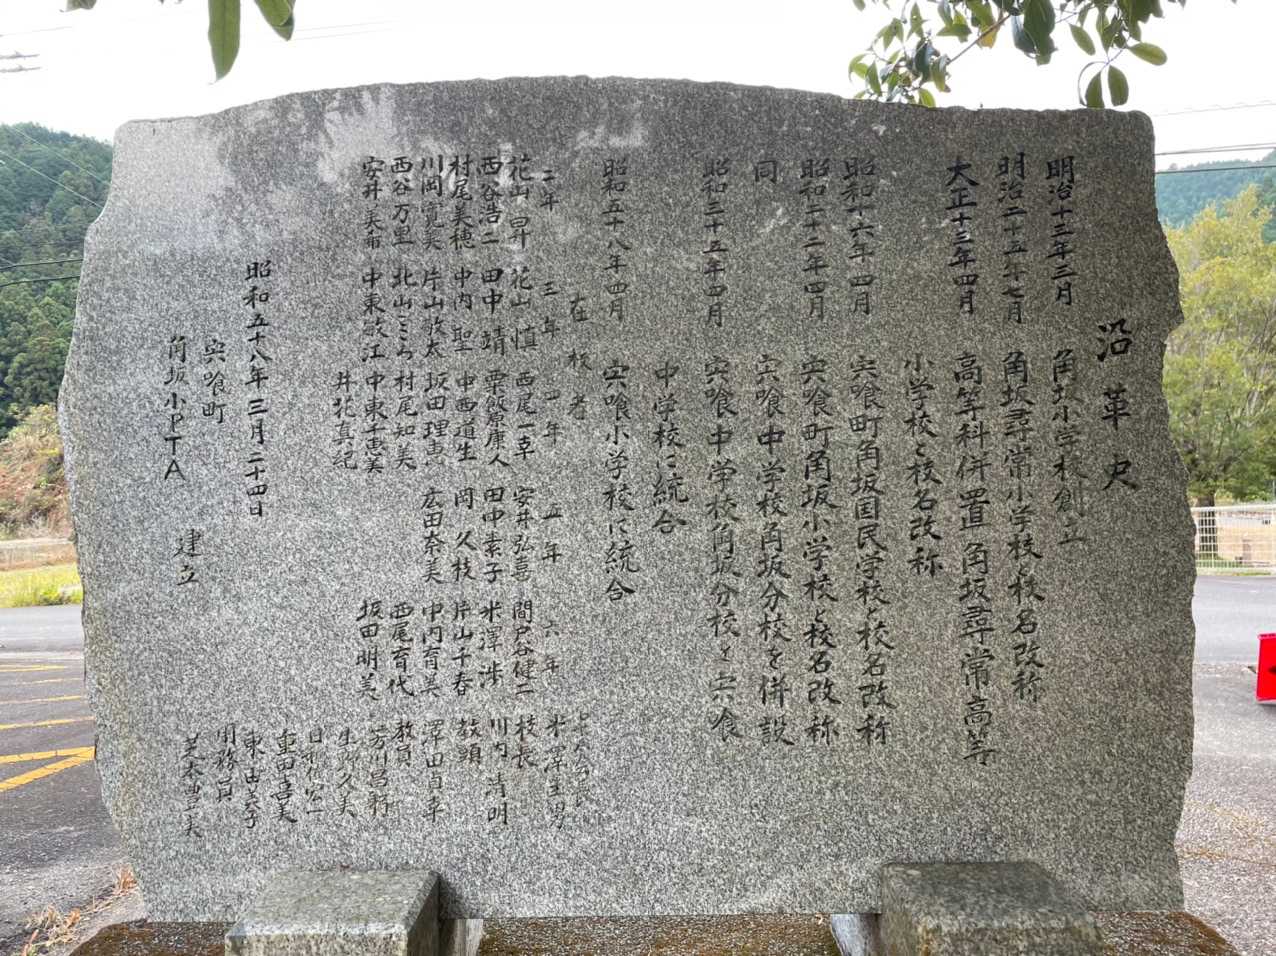 沿革史
明治十三年三月 角坂小学校創立
明治二十五年七月 角坂尋常小学校と校名改称
大正十三年四月 高等科併置角坂尋常高等
小学校と校名改称
昭和十六年四月 宍喰町角坂国民学校と校名改称
昭和二十二年四月 宍喰町角坂小学校と校名改称
同 宍喰中学校角坂分校を併設
昭和三十五年四月 宍喰中学校角坂分校を宍喰
中学校に統合
昭和五十八年四月 宍喰小学校に統合
在校者
二年 三年 四年 五年 六年
花山昇 花山慎 西尾一草 安井弘喜 間戸谷健二
西谷浩二 田中靖 粟飯原庸人 田中素子 米澤渉
村尾美穂 中内聖 中西道生 岡久枝 片山千春
川岡寛美 片山放太 坂田理恵 広田奈美 中内育美
西谷万里 北山こころ 村尾知美 西尾育代
安井美希 中東敏江 中東千恵美 坂田明美
井花真紀
校長
川内清明
教頭
教員
芳川昌朝
生杉久美
重田喜美
用務員
昭和五十八年三月二十四日
宍喰町
角坂小PTA 建立